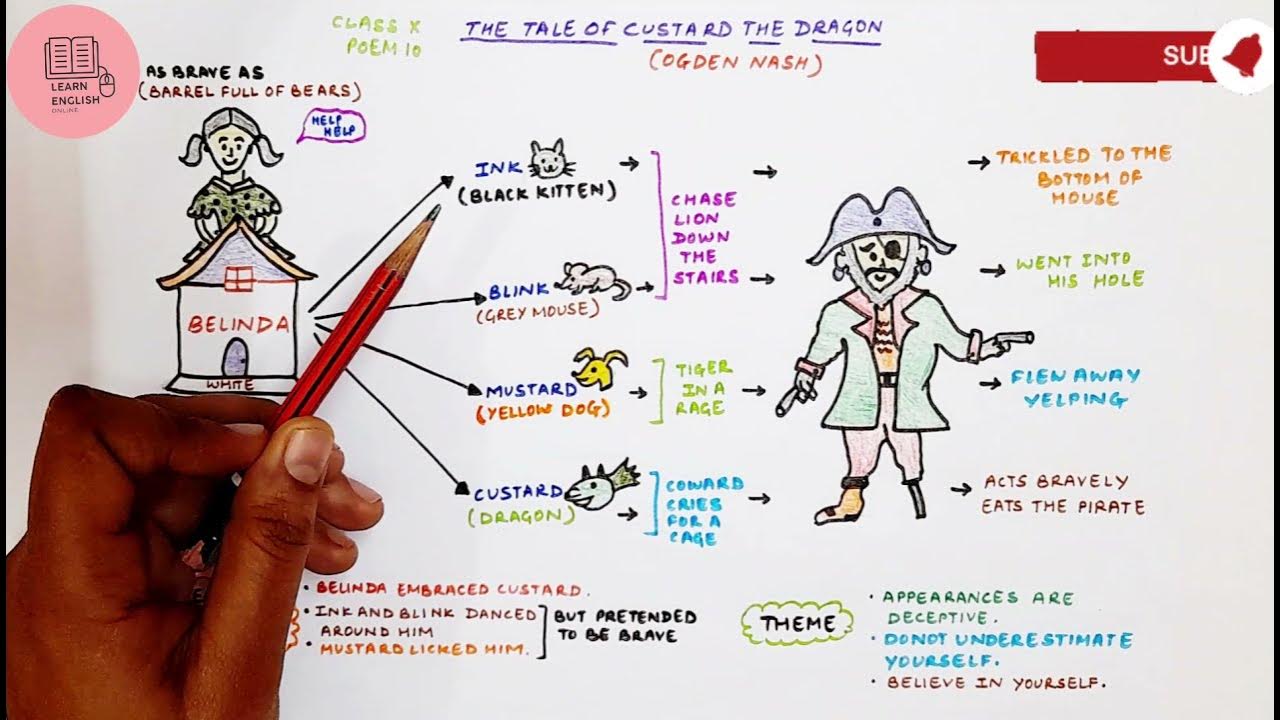 LEARN
ENGLISH
ONLINE
CLASS X
POEM 10
THE TALE OF CUSTARD THE DRAGON
(OGDEN NASH)
SUB
AS BRAVE AS
(BARREL FULL OF BEARS)
HELP
HELP
BELINDA
WHITE
INK
(BLACK KITTEN)
BLINK
(GREY MOUSE)
CHASE
LION
DOWN
THE
STAIRS
MUSTARD
(YELLOW DOG)
TIGER
IN A
RAGE
CUSTARD
(DRAGON)
COWARD
CRIES
FOR A
CAGE
TRICKLED TO THE
BOTTOM OF
HOUSE
WENT INTO
HIS HOLE
FLEW AWAY
YELPING
ACTS BRAVELY
EATS THE PIRATE
• BELINDA EMBRACED CUSTARD.
• INK AND BLINK DANCED
AROUND HIM
• MUSTARD LICKED HIM.
BUT PRETENDED
TO BE BRAVE
THEME
• APPEARANCES ARE
DECEPTIVE.
• DONOT UNDERESTIMATE
YOURSELF.
• BELIEVE IN YOURSELF.